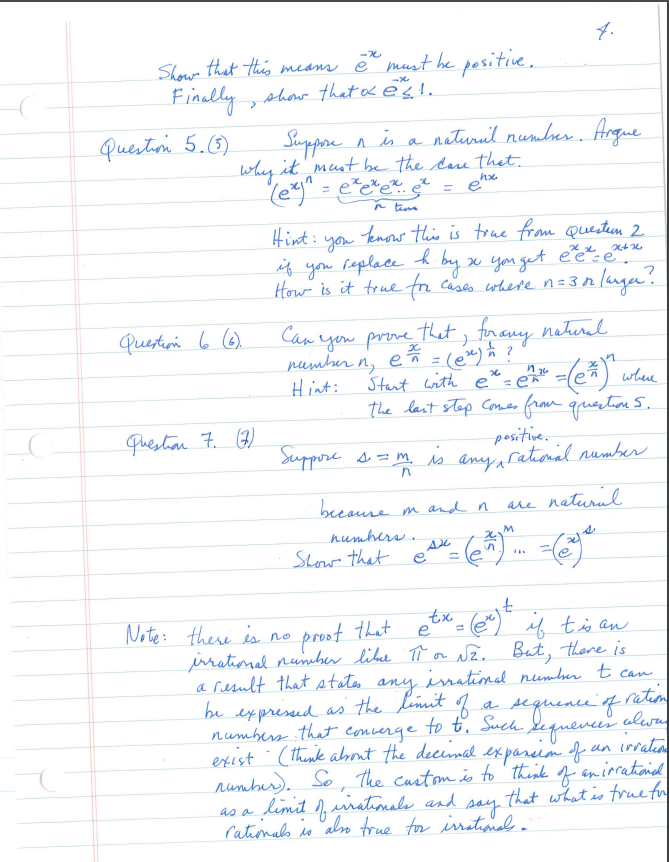 4.
Show that this means e^{-x} must be positive.
Finally, show that 0 < e^{-x} ≤ 1.
Question 5.(5) Suppose n is a natural number. Argue
why it must be the case that.
(e^x)^n = e^x e^x e^x .. e^x = e^{nx}
n times
Hint: you know this is true from Question 2
if you replace h by x you get e^x e^x = e^{x+x}
How is it true for cases where n=3 or larger?
Question 6 (6). Can you prove that, for any natural
number n, e^{x/n} = (e^x)^{1/n} ?
Hint: Start with e^x = e^{n x/n} = (e^{x/n})^n where
the last step comes from question 5.
Question 7. (7) positive.
Suppose s = m/n is any ^ rational number
because m and n are natural
numbers.
Show that e^{sx} = (e^{x/n})^m ... = (e^x)^s
Note: there is no proof that e^{tx} = (e^x)^t if t is an
irrational number like π or √2. But, there is
a result that states any irrational number t can
be expressed as the limit of a sequence of ration
numbers that converge to t. Such sequences alwa
exist (Think about the decimal expansion of an irration
number). So, the custom is to think of an irrational
as a limit of irrationals and say that what is true for
rationals is also true for irrationals.